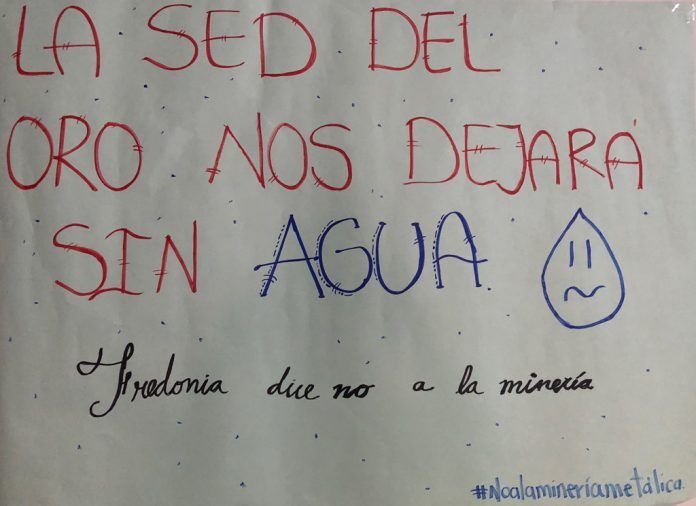 LA SED DEL
ORO NOS DEJARÁ
SIN AGUA
Fredonia dice no a la minería
#Noalamineríametálica.